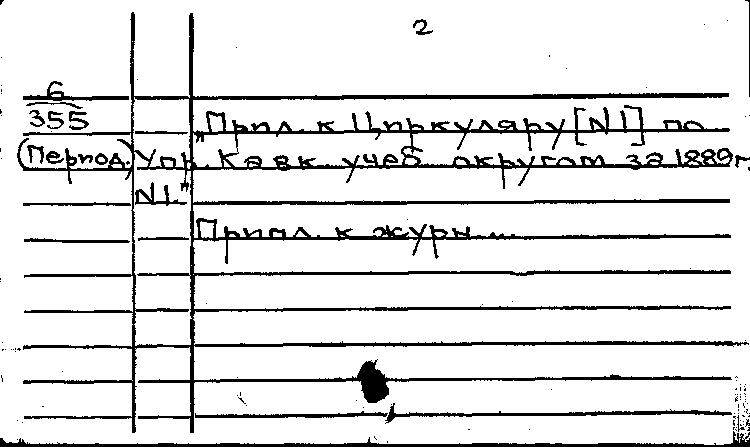 2
6
355
„Прил. к Циркуляру [N1] по
(Период.) Упр. Кавк. учеб. округом за 1889 г.
N1."
Прил. к журн....